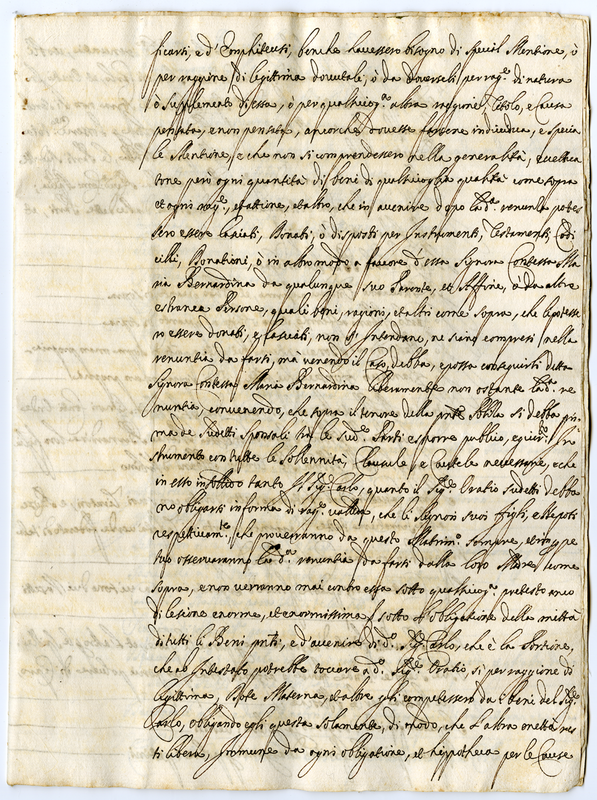 ficarti, e d'Emphiteuti, benche havessero bisogno di special Mentione, ò
per raggione di legitima dovutale, ò da doverseli per rag.e di natura
ò supplemento di essa, ò per qualsivog.a altra raggione, Titolo, e Causa
pensata, e non pensata, ancorche dovesse farsene individua, e specia
le Mentione, e che non si comprendessero nella generalità,
tione però ogni quantità di beni di qualsivoglia qualità come sopra
et ogni rag.e, et attione, et altro, che in avenire dopo la d.a renuntia potes
sero essere lasciati, Donati, ò disposti per Instrumenti, Testamenti, Codi
cilli, Donationi, ò in altro modo a favore d'essa Signora Contessa Ma
ria Bernardina da qualunque suo Parente, et Affine, ò da altre
estranee Persone, quali beni, ragioni, et altri come sopra, che li potesse
ro essere donati, e lasciati, non s'intendano, ne siano compresi nella
renuntia da farsi, mà venendo il Caso, debba, e possa conseguirli detta
Signora Contessa Maria Bernardina liberamente non ostante la d.a re
nuntia, convenendo, che sopra il tenore della pnte si debba pri
ma de sudetti Sponsali trà le sud.e Parti esporre publico, Ins
trumento con tutte le sollennità, Clausule, e Cautele necessarie, e che
in esso in solido tanto il Sig.r Carlo, quanto il Sig.r Oratio sudetti debba
no obligarsi in forma di rag.e valida, che li Signori suoi figli,
respettivam.te, che proveranno da questo Matrim.o sempre, et in perpe
tuo osserveranno la d.a renuntia da farsi dalla loro Madre come
sopra, e non verranno mai contro essa sotto qualsivog.a pretesto anco
di lesione enorme, et enormissima sotto l'obligatione della mettà
di tutti li Beni pnti, e d'avenire di d.o Sig.r Carlo, che è la Portione,
che ab intestato potrebbe toccare a d.o Sig.r Oratio, sì per raggione di
legittima, Dote Materna, et altre gli competessero da i beni del Sig.r
Carlo, obligando egli questa solamente, di modo, che l'altra mettà res
ti libera, immune da ogni obligatione, et hippotheca per le Cause